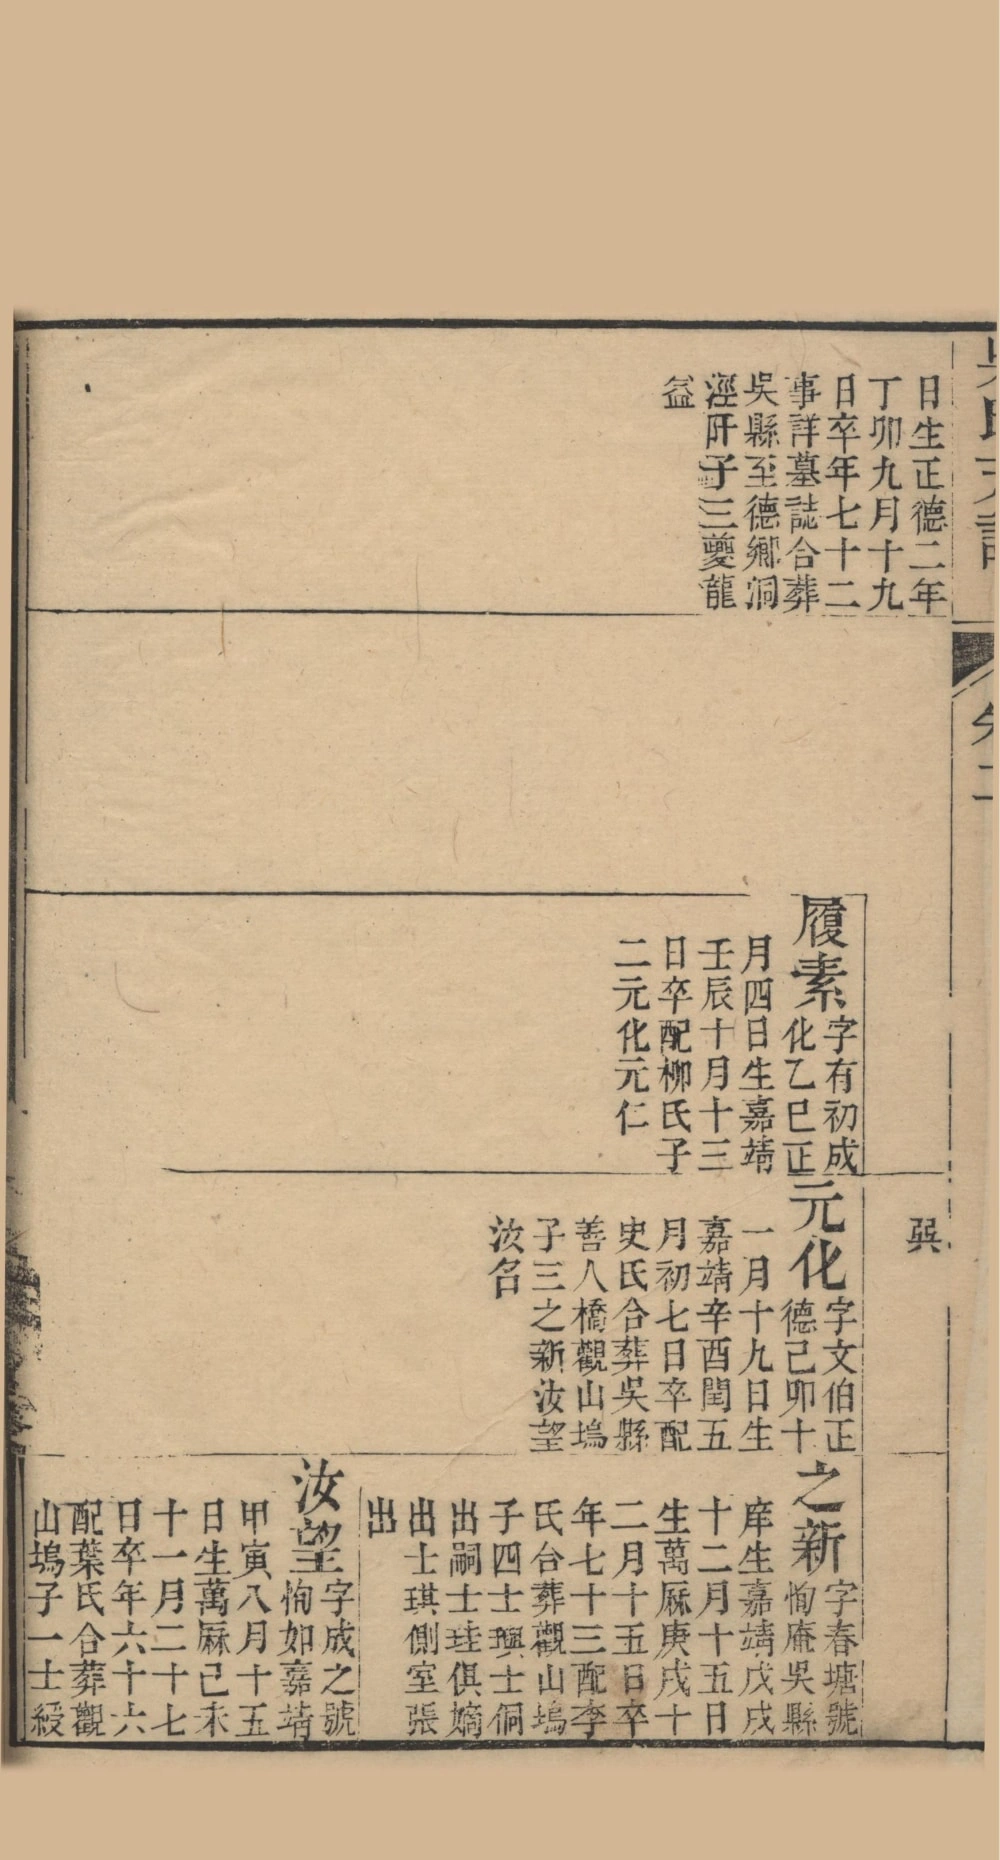 吳氏支譜
卷二
日生正德二年
丁卯九月十九
日卒年七十二
事詳墓誌合葬
吳縣至德鄉洞
涇阡子三夔龍
益
履素
字有初成
化乙巳正
月四日生嘉靖
壬辰十月十三
日卒配柳氏子
二元化元仁
巽
元化
字文伯正
德己卯十
一月十九日生
嘉靖辛酉閏五
月初七日卒配
史氏合葬吳縣
善人橋觀山塢
子三之新汝望
汝名
之新
字春塘號
恂庵吳縣
庠生嘉靖戊戌
十二月十五日
生萬厤庚戌十
二月十五日卒
年七十三配李
氏合葬觀山塢
子四士璵士侗
出嗣士珪俱嫡
出士琪側室張
出
汝望
字成之號
恂如嘉靖
甲寅八月十五
日生萬厤己未
十一月二十七
日卒年六十六
配葉氏合葬觀
山塢子一士綬